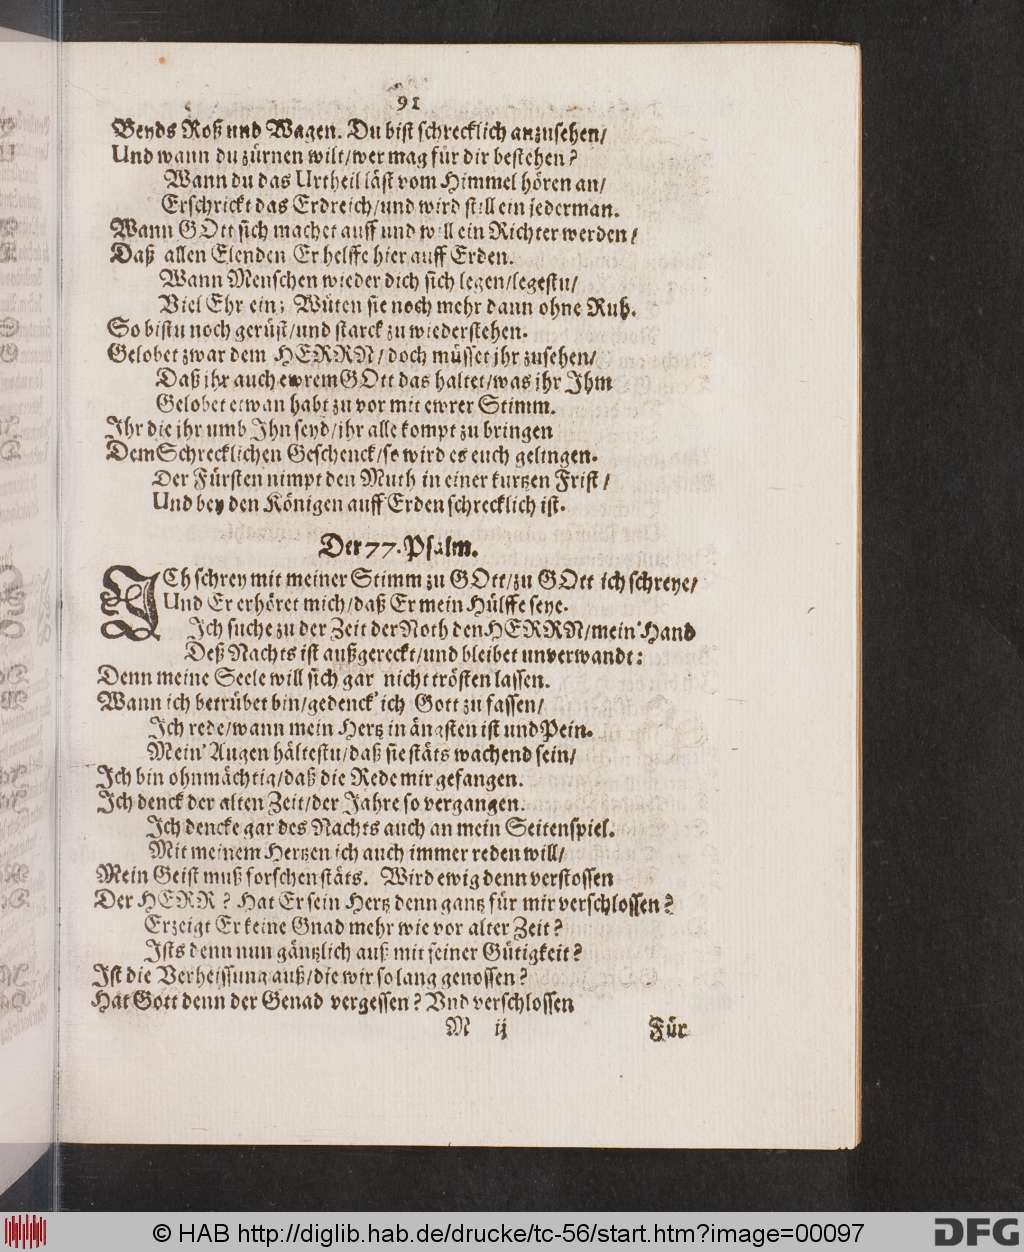 91
Beyds Roß und Wagen. Du bist schrecklich anzusehen/
Und wann du zürnen wilt/wer mag für dir bestehen?
Wann du das Urtheil läst vom Himmel hören an/
Erschrickt das Erdreich/und wird still ein jederman.
Wann GOtt sich machet auff und will ein Richter werden/
Daß allen Elenden Er helffe hier auff Erden.
Wann Menschen wieder dich sich legen/legestu/
Viel Ehr ein; Wüten sie noch mehr dann ohne Ruh.
So bistu noch gerüst/und starck zu wiederstehen.
Gelobet zwar dem HERRN/doch müsset jhr zusehen/
Daß jhr auch ewrem GOtt das haltet/was jhr Jhm
Gelobet etwan habt zu vor mit ewrer Stimm.
Jhr die jhr umb Jhn seyd/jhr alle kompt zu bringen
Dem Schrecklichen Geschenck/so wird es euch gelingen.
Der Fürsten nimpt den Muth in einer kurtzen Frist/
Und bey den Königen auff Erden schrecklich ist.
Der 77. Psalm.
JCh schrey mit meiner Stimm zu GOtt/zu GOtt ich schreye/
Und Er erhöret mich/daß Er mein Hülffe seye.
Jch suche zu der Zeit der Noth den HERRN/mein' Hand
Deß Nachts ist außgereckt/und bleibet unverwandt:
Denn meine Seele will sich gar nicht trösten lassen.
Wann ich betrübet bin/gedenck' ich Gott zu fassen/
Jch rede/wann mein Hertz in ängsten ist und Pein.
Mein' Augen hältestu/daß sie stäts wachend sein/
Jch bin ohnmächtig/daß die Rede mir gefangen.
Jch denck der alten Zeit/der Jahre so vergangen.
Jch dencke gar des Nachts auch an mein Seitenspiel.
Mit meinem Hertzen ich auch immer reden will/
Mein Geist muß forschen stäts. Wird ewig denn verstossen
Der HERR? Hat Er sein Hertz denn gantz für mir verschlossen?
Erzeigt Er keine Gnad mehr wie vor alter Zeit?
Jsts denn nun gäntzlich auß mit seiner Gütigkeit?
Jst die Verheissung auß/die wir so lang genossen?
Hat Gott denn der Genad vergessen? Vnd verschlossen
M ij Für
© HAB http://diglib.hab.de/drucke/tc-56/start.htm?image=00097
DFG